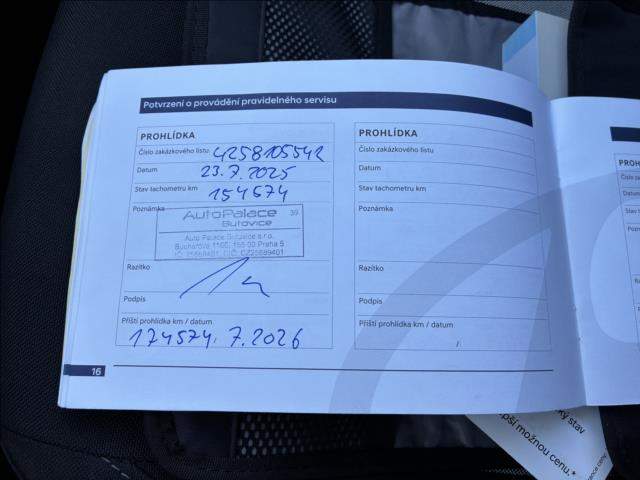 Potvrzení o provádění pravidelného servisu
PROHLÍDKA
Číslo zakázkového listu 4258105542
Datum 23.7.2025
Stav tachometru km 154574
Poznámka
AutoPalace 39
Butovice
Auto Palace Butovice s.r.o.
Bucharova 1186, 155 00 Praha 5
Razítko
Podpis
Příští prohlídka km / datum
174574. 7.2026
16
PROHLÍDKA
Číslo zakázkového listu
Datum
Stav tachometru km
Poznámka
Razítko
Podpis
Příští prohlídka km / datum
/
PROHL
Číslo zaká
Datum
Stav
Pozn
cký stav
pší možnou cenu.*